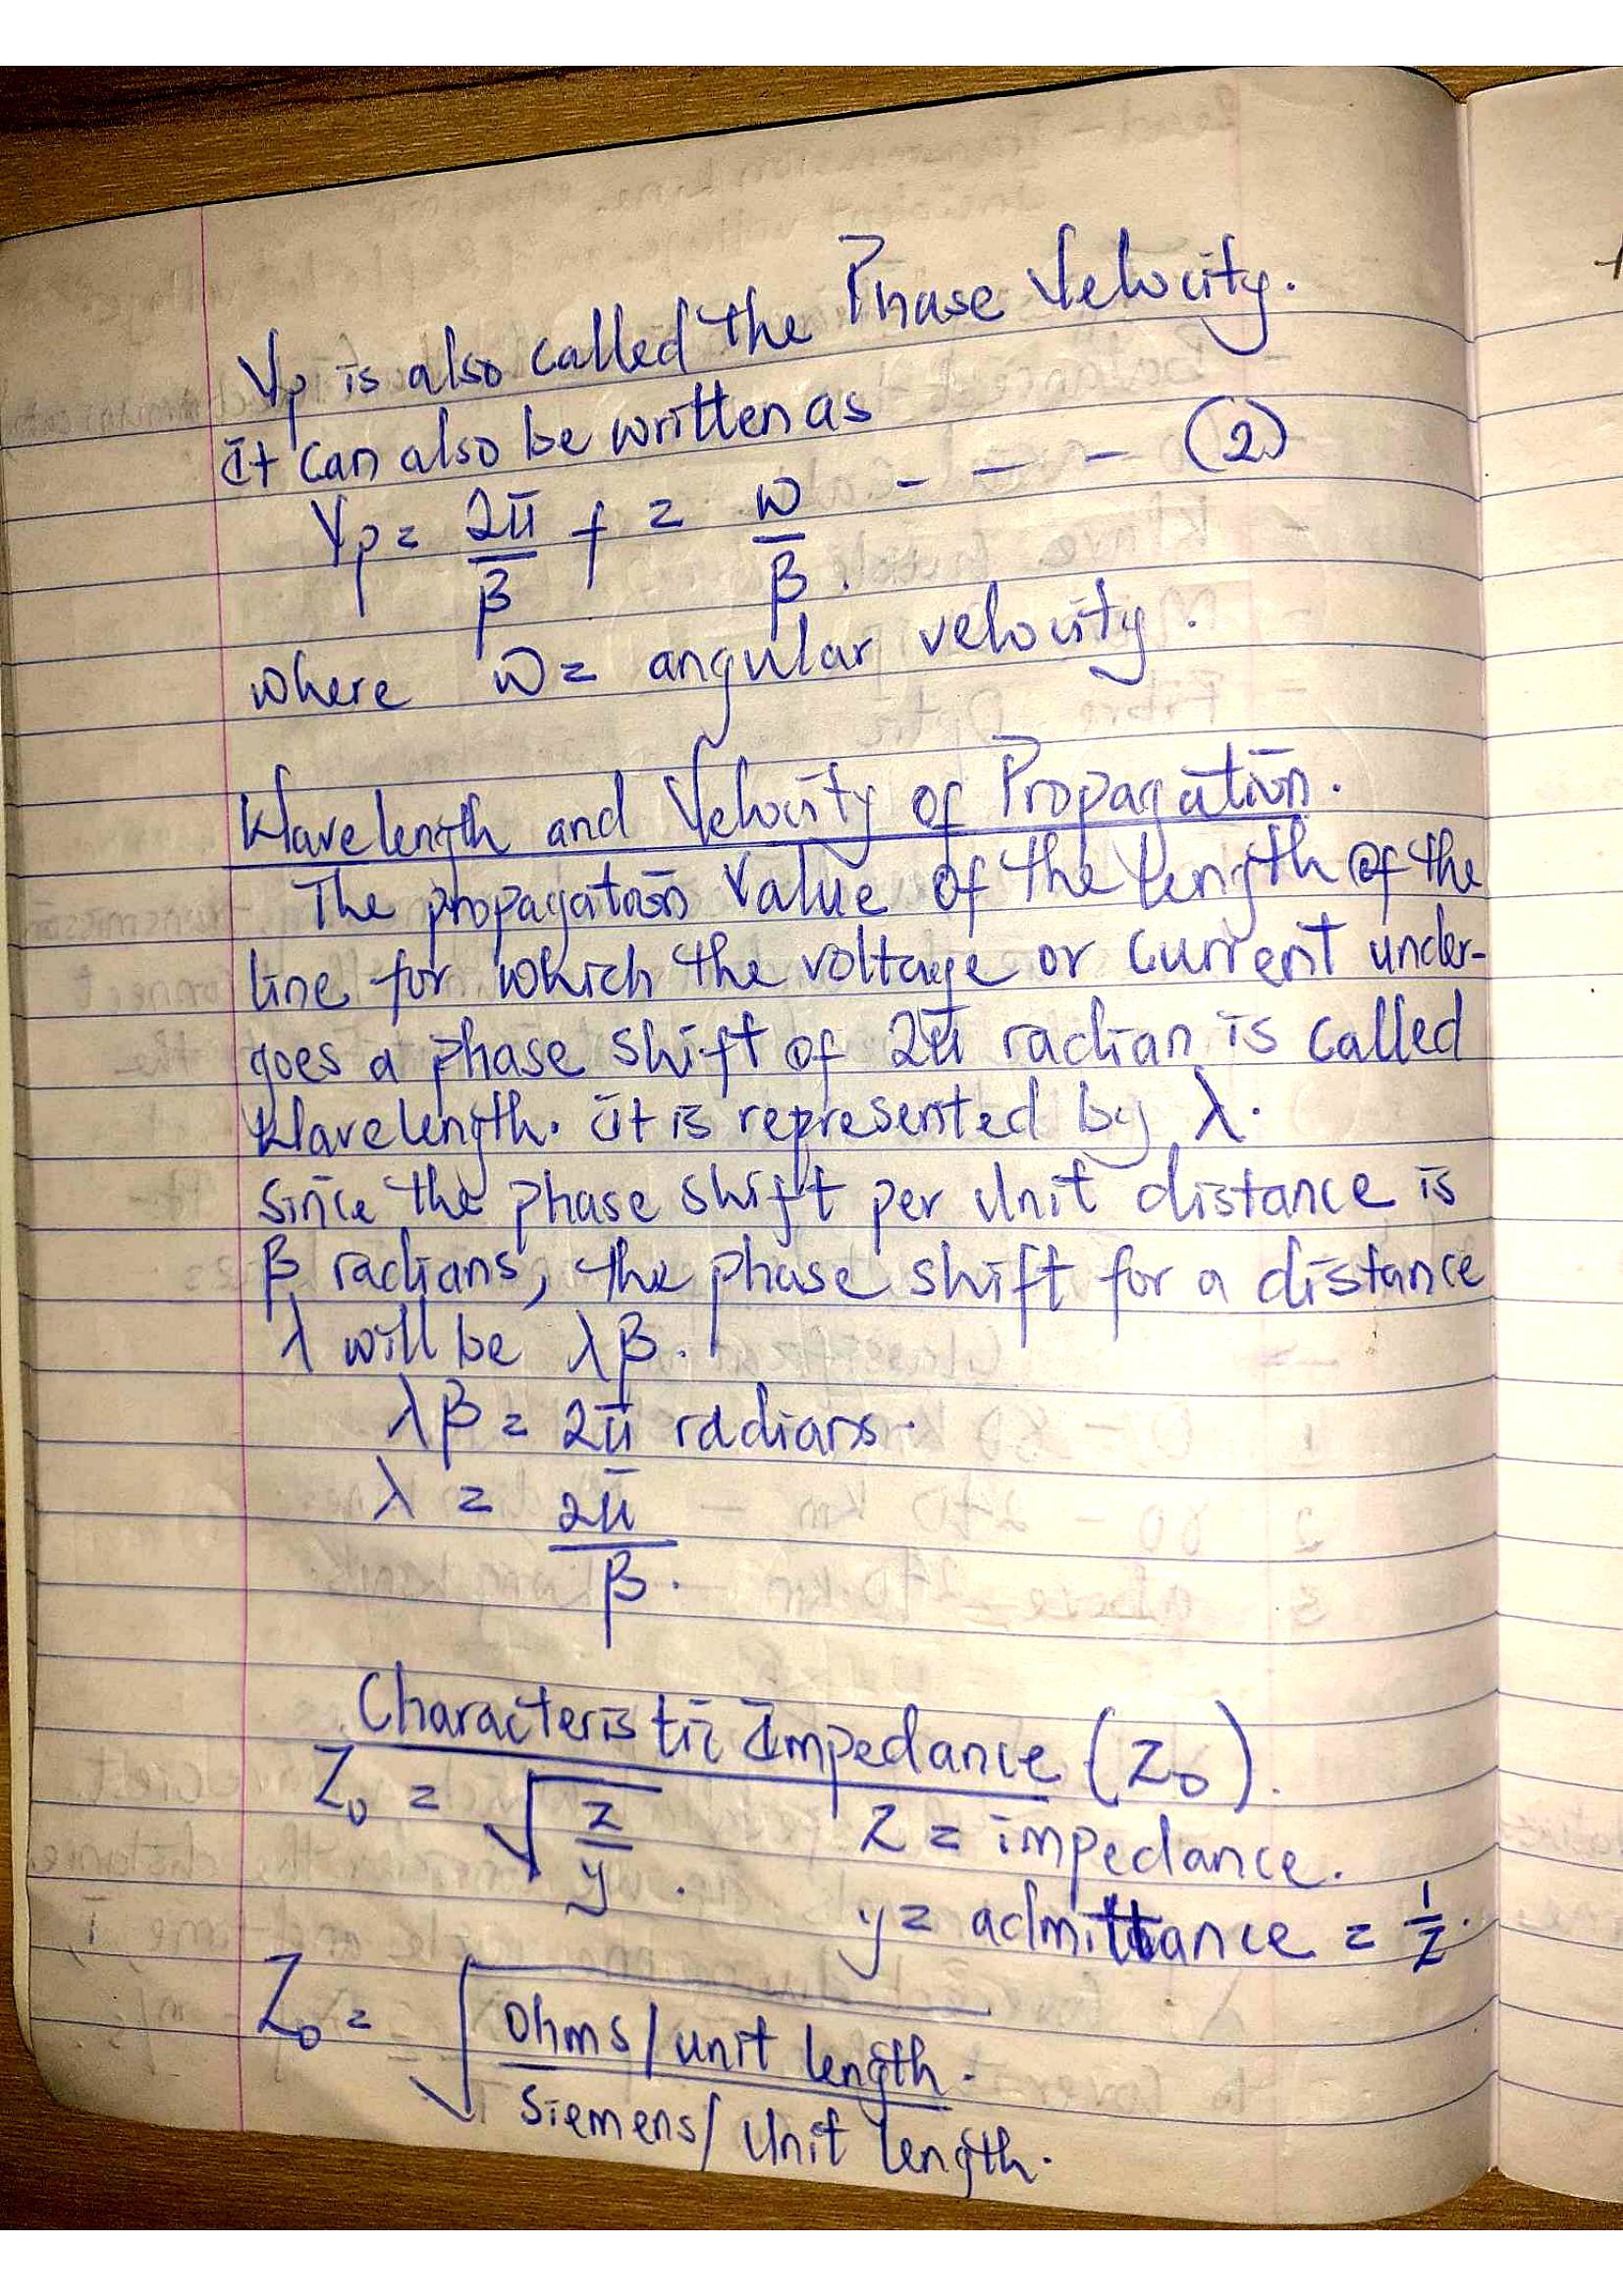 Vp is also called the Phase Velocity.
It can also be written as
Vp = 2π/β f = ω/β. - - - - (2)
where ω = angular velocity.
Wavelength and Velocity of Propagation.
The propagation value of the length of the
line for which the voltage or current under-
goes a phase shift of 2π radian is called
Wavelength. it is represented by λ.
Since the phase shift per unit distance is
β radians, the phase shift for a distance
λ will be λβ.
λβ = 2π radians.
λ = 2π/β.
Characteristic Impedance (Zo).
Zo = √(z/y). Z = impedance.
y = admittance = 1/z.
Zo = √(Ohms/unit length. / Siemens/unit length.)